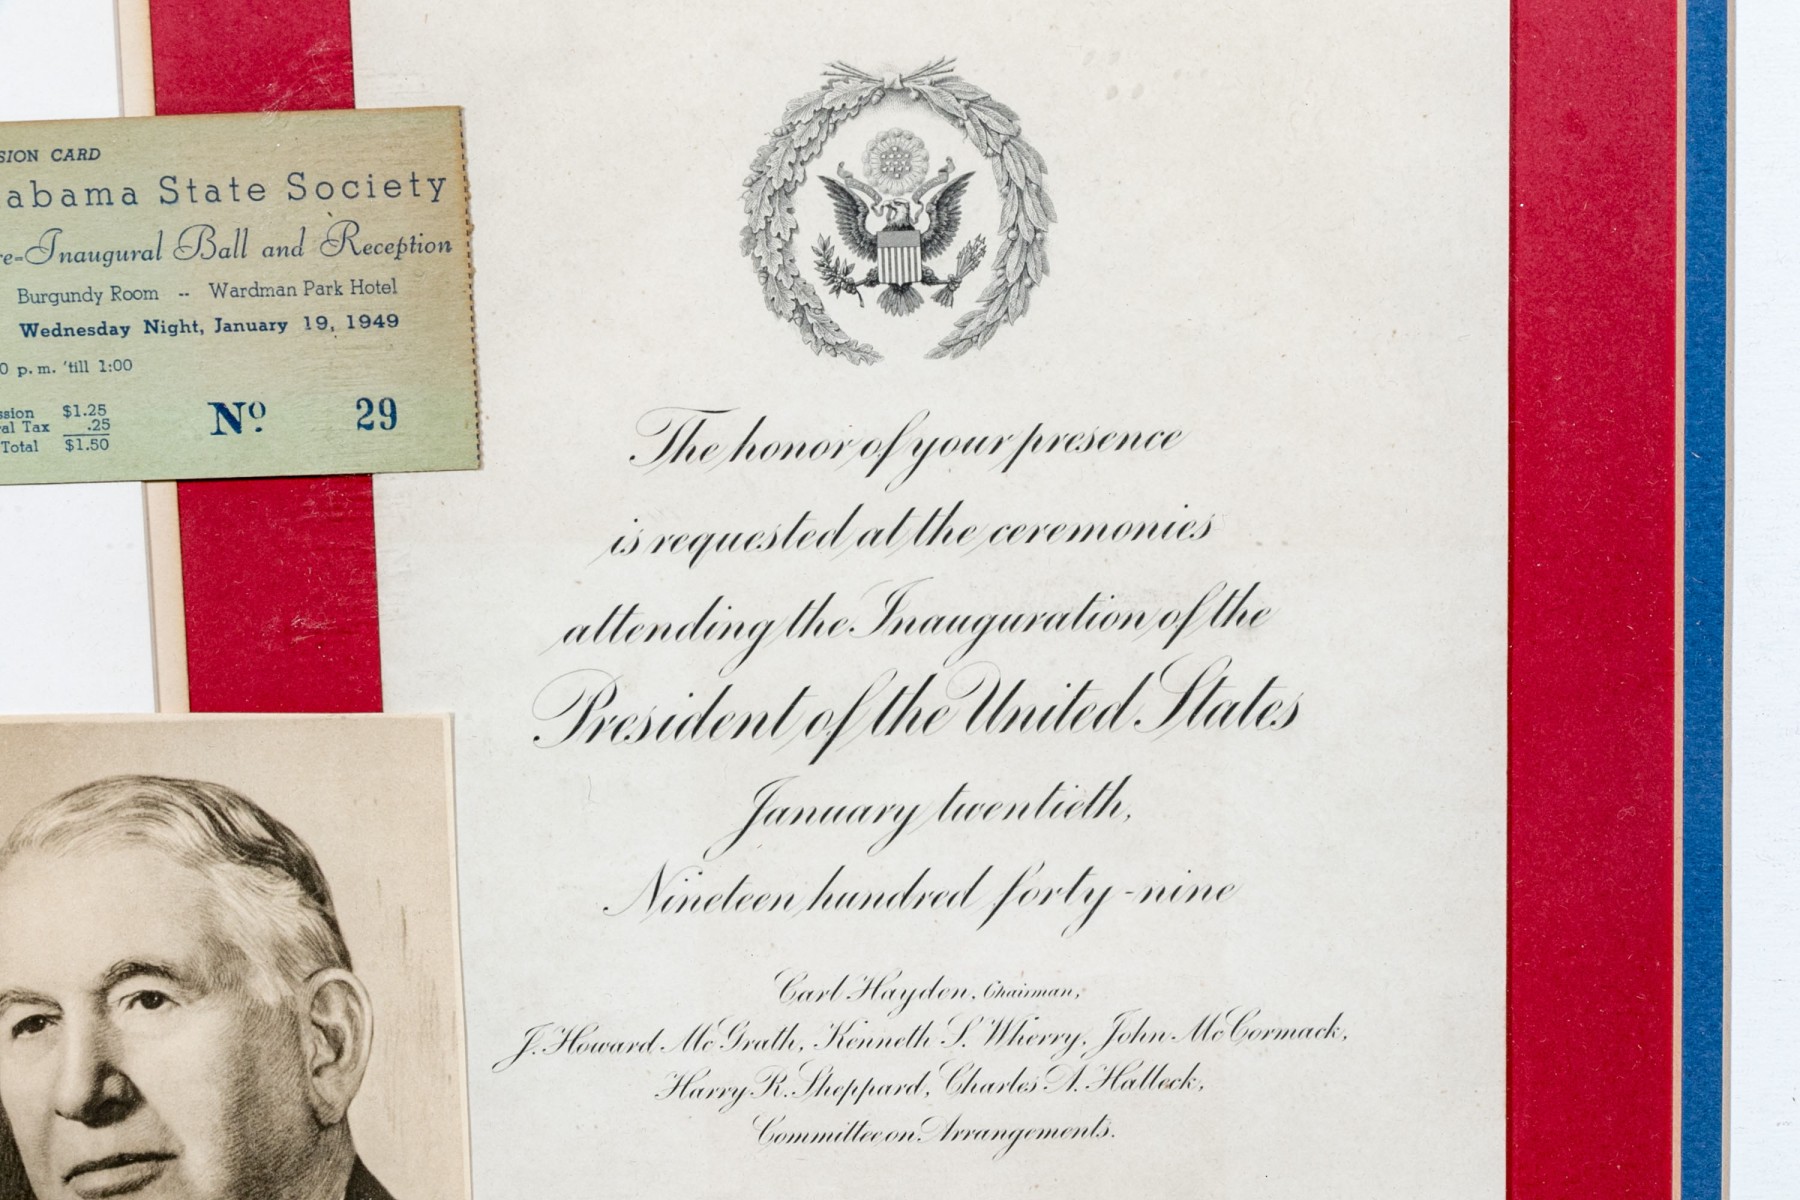 SION CARD
abama State Society
re-Inaugural Ball and Reception
Burgundy Room -- Wardman Park Hotel
Wednesday Night, January 19, 1949
0 p. m. 'till 1:00
ssion $1.25
ral Tax .25
Total $1.50
Nº. 29
The honor of your presence
is requested at the ceremonies
attending the Inauguration of the
President of the United States
January twentieth,
Nineteen hundred forty-nine
Carl Hayden, Chairman,
J. Howard Mc Grath, Kenneth S. Wherry, John Mc Cormack,
Harry R. Sheppard, Charles A. Halleck,
Committee on Arrangements.